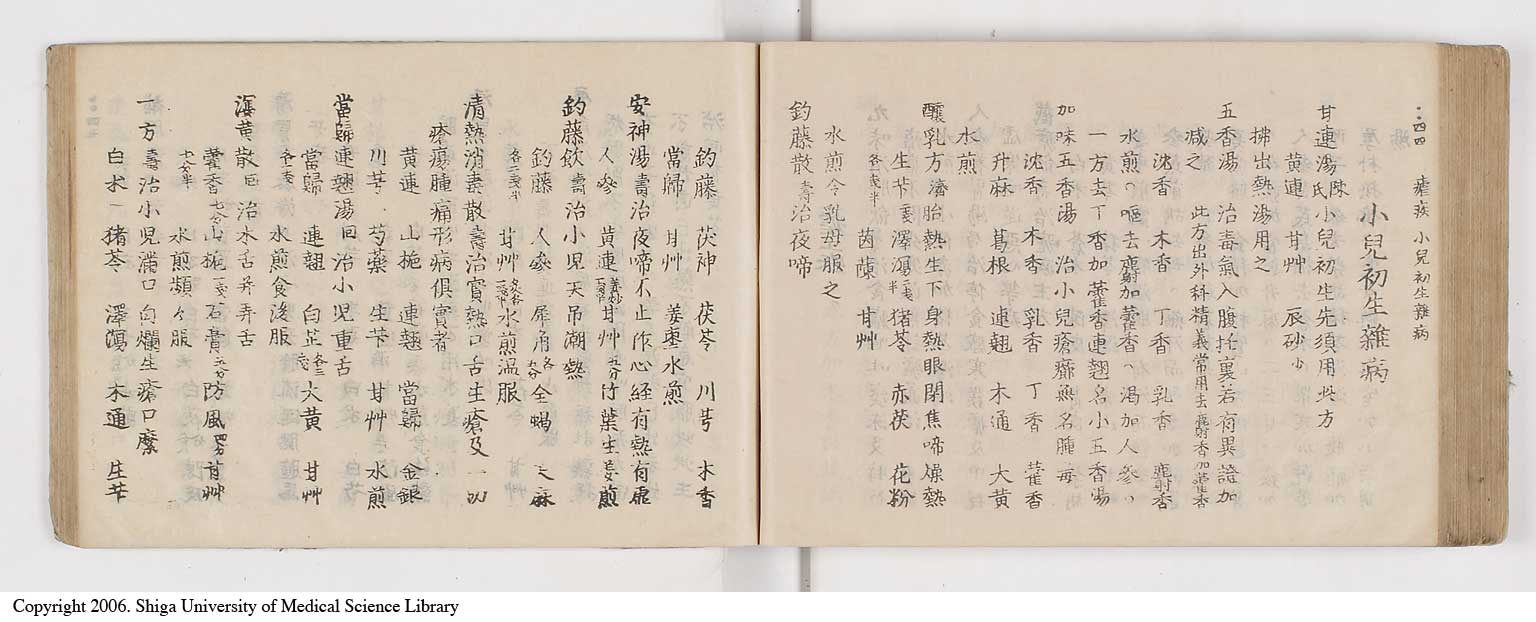 ・四四　瘧疾　小兒初生雜病
小兒初生雜病
甘連湯 陳氏 小兒初生先須用此方
黄連　甘艸　辰砂 少
拂出熱湯用之
五香湯　治毒氣入腹托裏若有異證加
減之　此方出外科精義常用去麝香加藿香
沈香　木香　丁香　乳香　麝香
水煎〇嘔去麝加藿香〇渇加人參〇
一方去丁香加藿香連翹名小五香湯
加味五香湯　治小兒瘡癤無名腫毒
沈香　木香　乳香　丁香　藿香
升麻　葛根　連翹　木通　大黄
水煎
釀乳方 濟 胎熱生下身熱眼閉焦啼燥熱
生芐 二戔 澤瀉 二戔半 猪苓　赤茯　花粉
各壱戔半　茵蔯　甘艸
水煎令乳母服之
釣藤散 壽 治夜啼
釣藤　茯神　茯苓　川芎　木香
當歸　甘艸　姜棗水煎
安神湯 壽 治夜啼不止作心経有熱有虚
人參　黄連 姜炒 一戔半 甘艸 五分 竹葉生姜煎
釣藤飲 壽 治小児天吊潮熱
釣藤　人參　犀角 各五分 全蝎　天麻
各二戔半　甘艸 水煎温服
清熱消毒散 壽 治實熱口舌生瘡及一切
瘡瘍腫痛形病倶實者
黄連　山梔　連翹　當歸　金銀
川芎　芍薬　生芐　甘艸　水煎
當歸連翹湯 回 治小児重舌
當歸　連翹　白芷 各三戔 大黄　甘艸
各壱戔　水煎食後服
瀉黄散 回 治木舌并弄舌
藿香 七分 山梔 一戔 石膏 五分 防風 四分 甘艸
七分半　水煎頻々服
一方 壽 治小児滿口白爛生瘡口糜
白朮　猪苓　澤瀉　木通　生芐
Copyright 2006. Shiga University of Medical Science Library